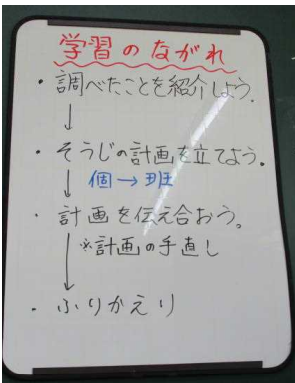 学習のながれ
・調べたことを紹介しよう。
↓
・そうじの計画を立てよう。
↓ 個→班
・計画を伝え合おう。
↓ ※計画の手直し
・ふりかえり